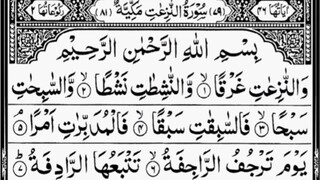 اٰیَاتُهَا ۴۶ (۷۹) سُوْرَةُ النّٰزِعٰتِ مَكِّیَّةٌ (۸۱) رُكُوْعَاتُهَا ۲
بِسْمِ اللّٰهِ الرَّحْمٰنِ الرَّحِیْمِ
وَالنّٰزِعٰتِ غَرْقًا ۱ وَّالنّٰشِطٰتِ نَشْطًا ۲ وَّالسّٰبِحٰتِ
سَبْحًا ۳ فَالسّٰبِقٰتِ سَبْقًا ۴ فَالْمُدَبِّرٰتِ اَمْرًا ۵
یَوْمَ تَرْجُفُ الرَّاجِفَةُ ۶ تَتْبَعُهَا الرَّادِفَةُ ۷